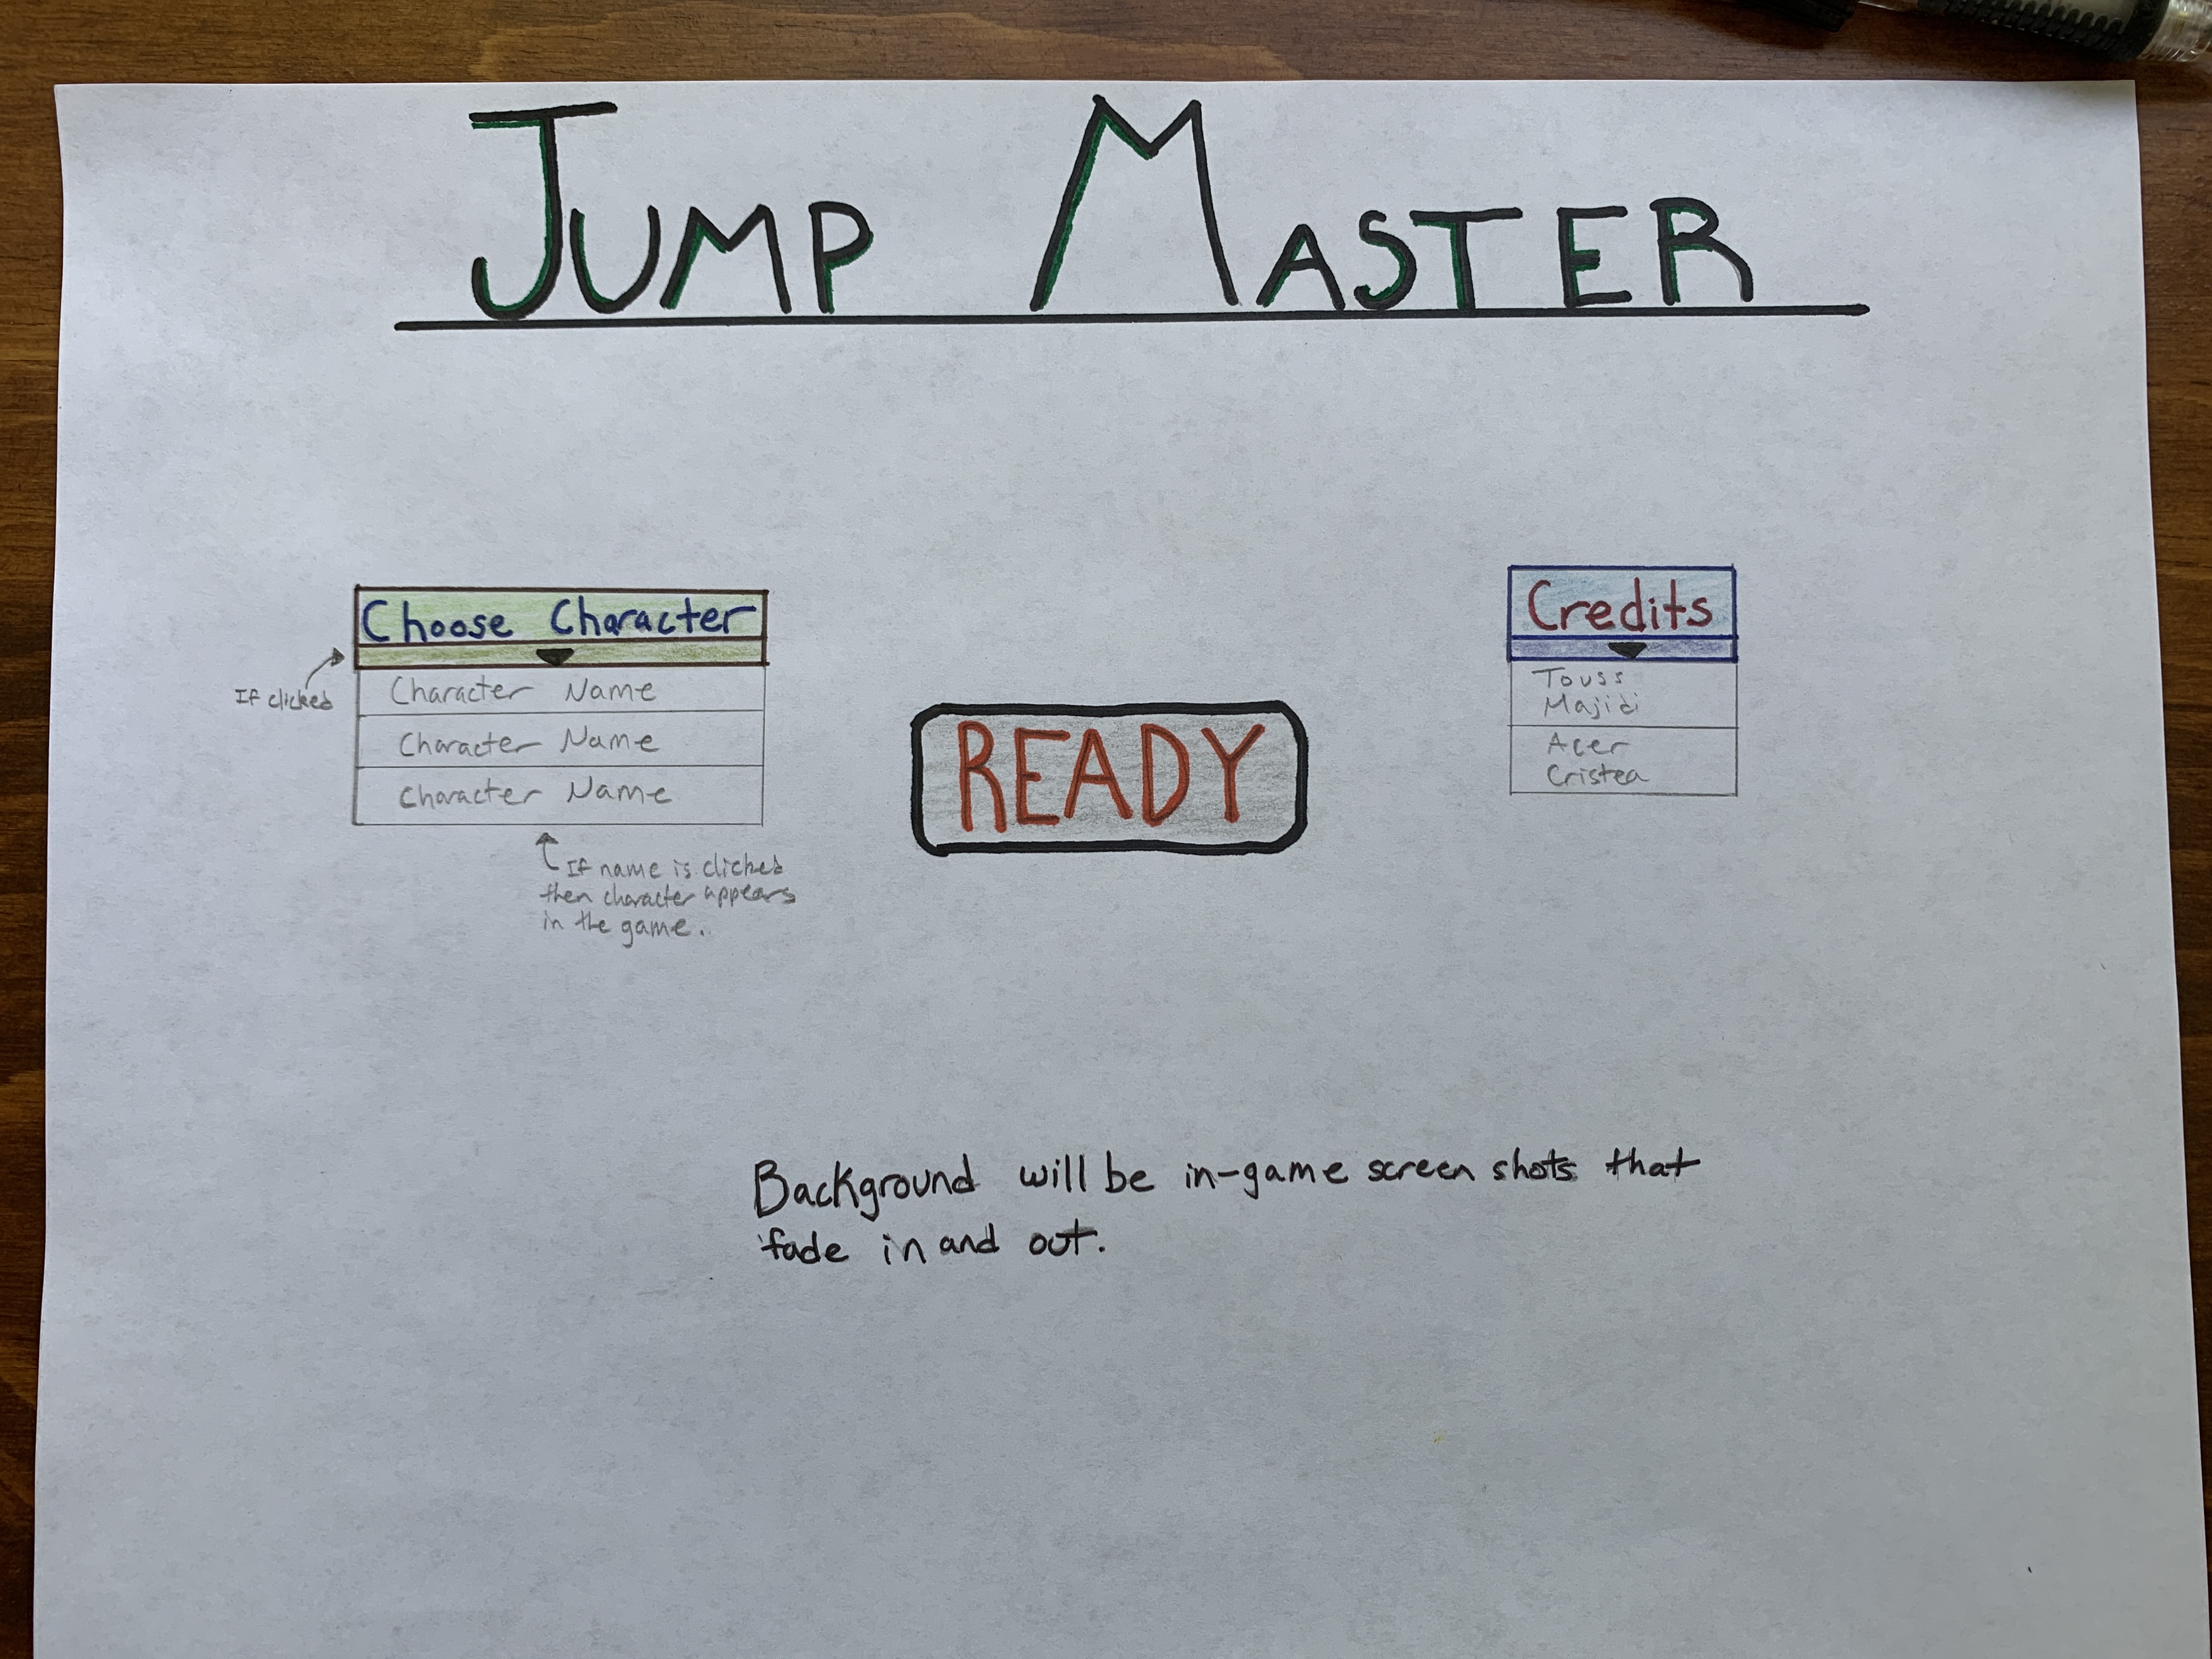 JUMP MASTER
If clicked
Choose Character
Character Name
Character Name
Character Name
If name is clicked
then character appears
in the game..
READY
Credits
Touss
Majidi
Acer
Cristea
Background will be in-game screen shots that
fade in and out.